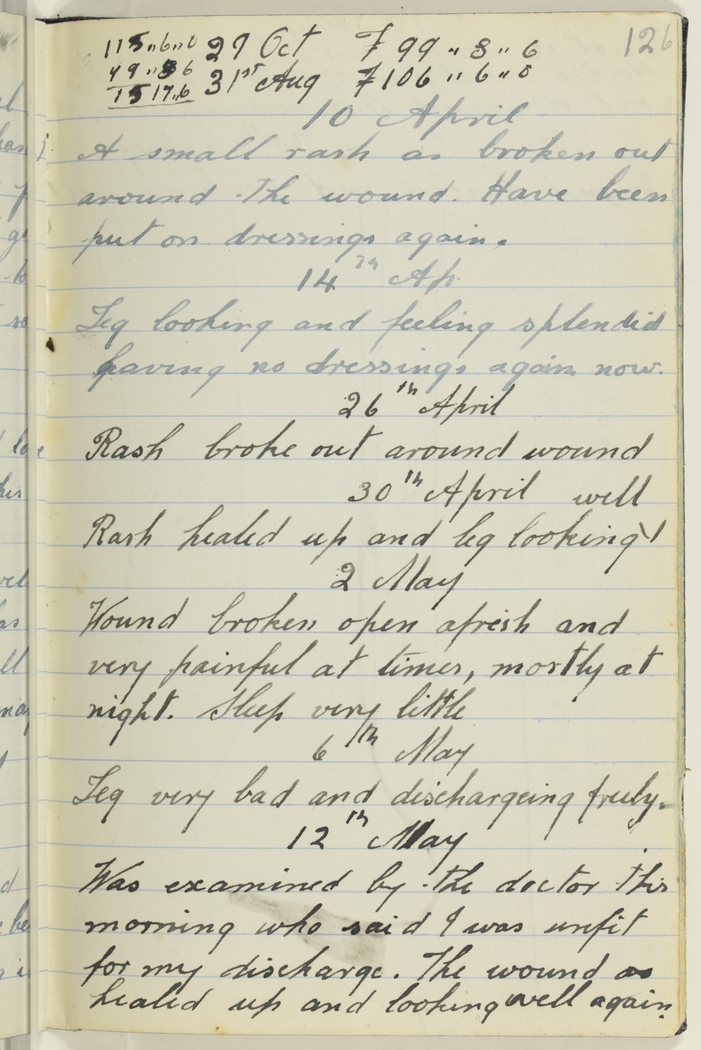 115,,6,,0 29 Oct £99 ,, 8 ,, 6 126
49,,8 6 31st Aug £106 ,, 6 ,, 0
15 17,,6
10 April
A small rash as broken out
around the wound. Have been
put on dressings again.
14th Ap.
Leg looking and feeling splendid
having no dressings again now.
26th April
Rash broke out around wound
30th April well
Rash healed up and leg looking
2 May
Wound broken open afresh and
very painful at times, mostly at
night. Sleep very little
6th May
Leg very bad and dischargeing freely.
12th May
Was examined by the doctor this
morning who said I was unfit
for my discharge. The wound as
healed up and looking well again.